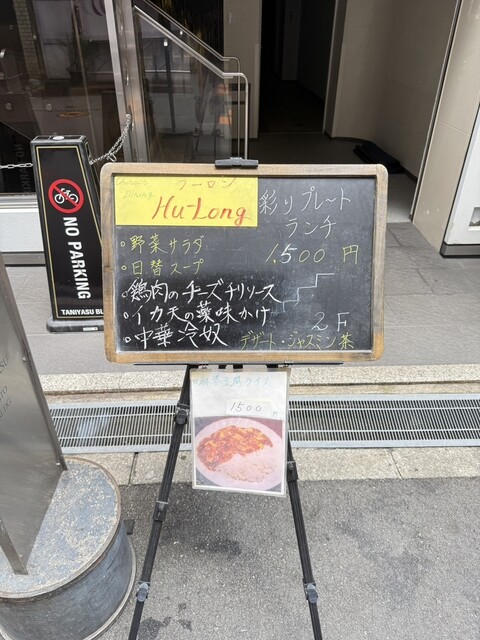 Chinese
DINING
フーロン
Hu-Long
彩りプレート
ランチ
1,500 円
○野菜サラダ
○日替スープ
○鶏肉のチーズチリソース
○イカ天の薬味かけ
○中華冷奴
2F
デザート・ジャスミン茶
麻婆豆腐ライス
1500円
NO PARKING